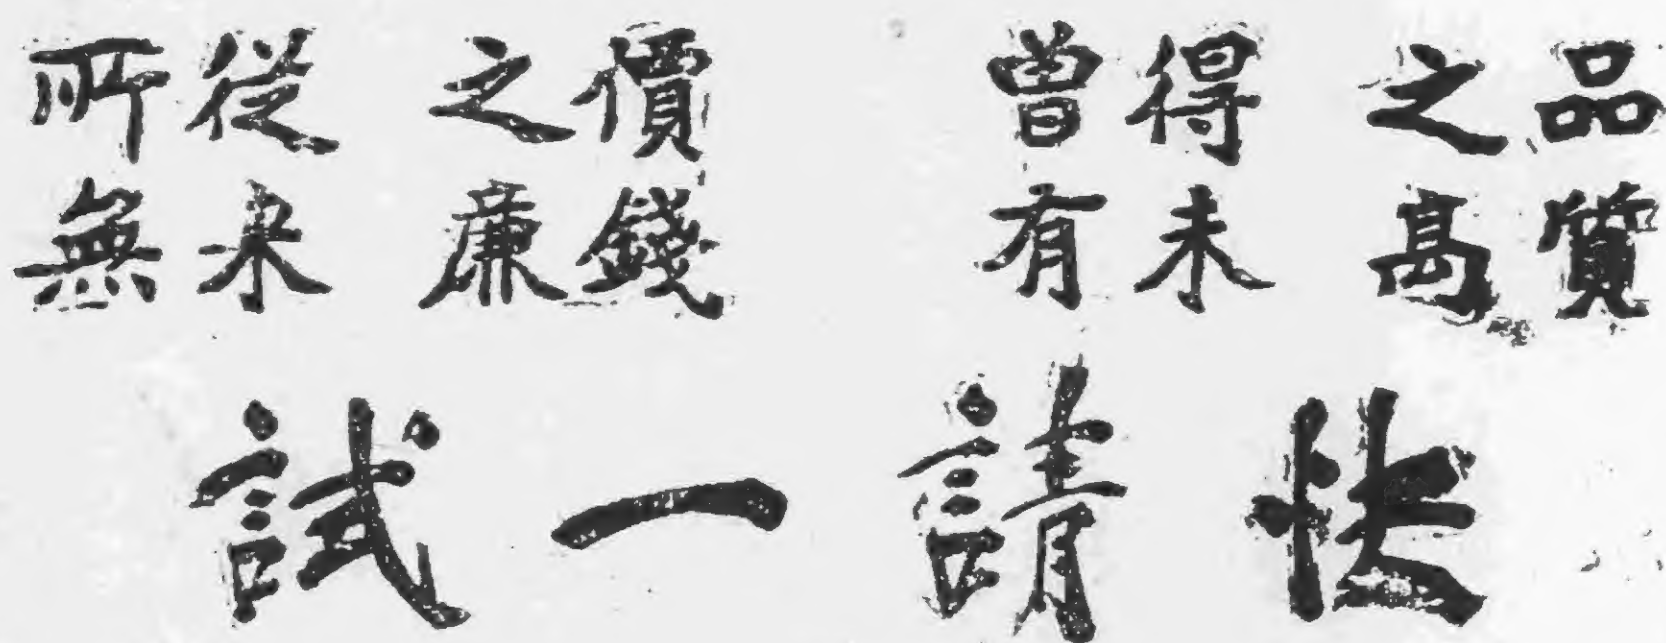 品質之高
得未曾有
價錢之廉
從来所無
快請一試